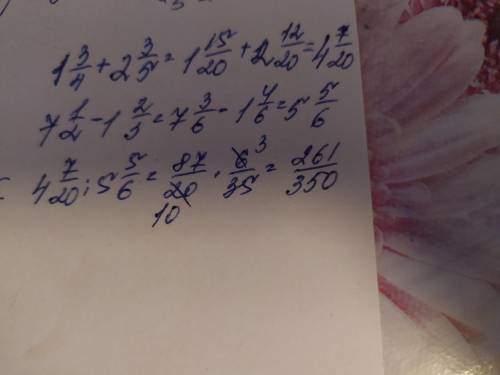 1 3/4 + 2 3/5 = 1 15/20 + 2 12/20 = 4 7/20
7 1/2 - 1 2/3 = 7 3/6 - 1 4/6 = 5 5/6
4 7/20 : 5 5/6 = 87/20 · 6/35 = 261/350
10 3